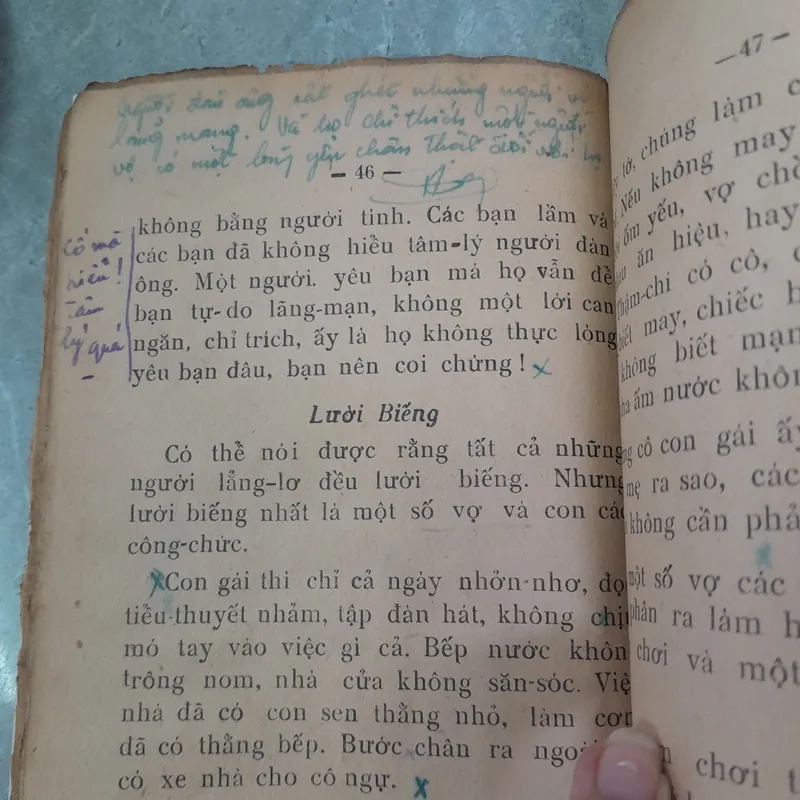 Người đàn ông rất ghét những người vợ
lãng mạng. Và họ chỉ thích một người
vợ có một lòng yêu chân thật đối với họ
— 46 —
không bằng người tình. Các bạn lầm và
các bạn đã không hiểu tâm-lý người đàn
ông. Một người. yêu bạn mà họ vẫn để
bạn tự-do lãng-mạn, không một lời can
ngăn, chỉ trích, ấy là họ không thực lòng
yêu bạn đâu, bạn nên coi chừng !
Cô mà
hiểu !
tâm
lý quá
Lười Biếng
Có thể nói được rằng tất cả những
người lẳng-lơ đều lười biếng. Nhưng
lười biếng nhất là một số vợ và con các
công-chức.
Con gái thì chỉ cả ngày nhởn-nhơ, đọ
tiểu-thuyết nhảm, tập đàn hát, không chị
mó tay vào việc gì cả. Bếp nước khôn
trông nom, nhà cửa không săn-sóc. Việ
nhà đã có con sen thằng nhỏ, làm cơm
đã có thằng bếp. Bước chân ra ngoài
có xe nhà cho cô ngự.
— 47 —
tớ, chúng làm c
Nếu không may
ốm yếu, vợ chồ
ăn hiệu, hay
thậm-chí có cô, c
biết may, chiếc
không biết mạn
pha ấm nước khôn
cô con gái ấy
mẹ ra sao, các
không cần phả
một số vợ các
phân ra làm h
chơi và một
chơi t